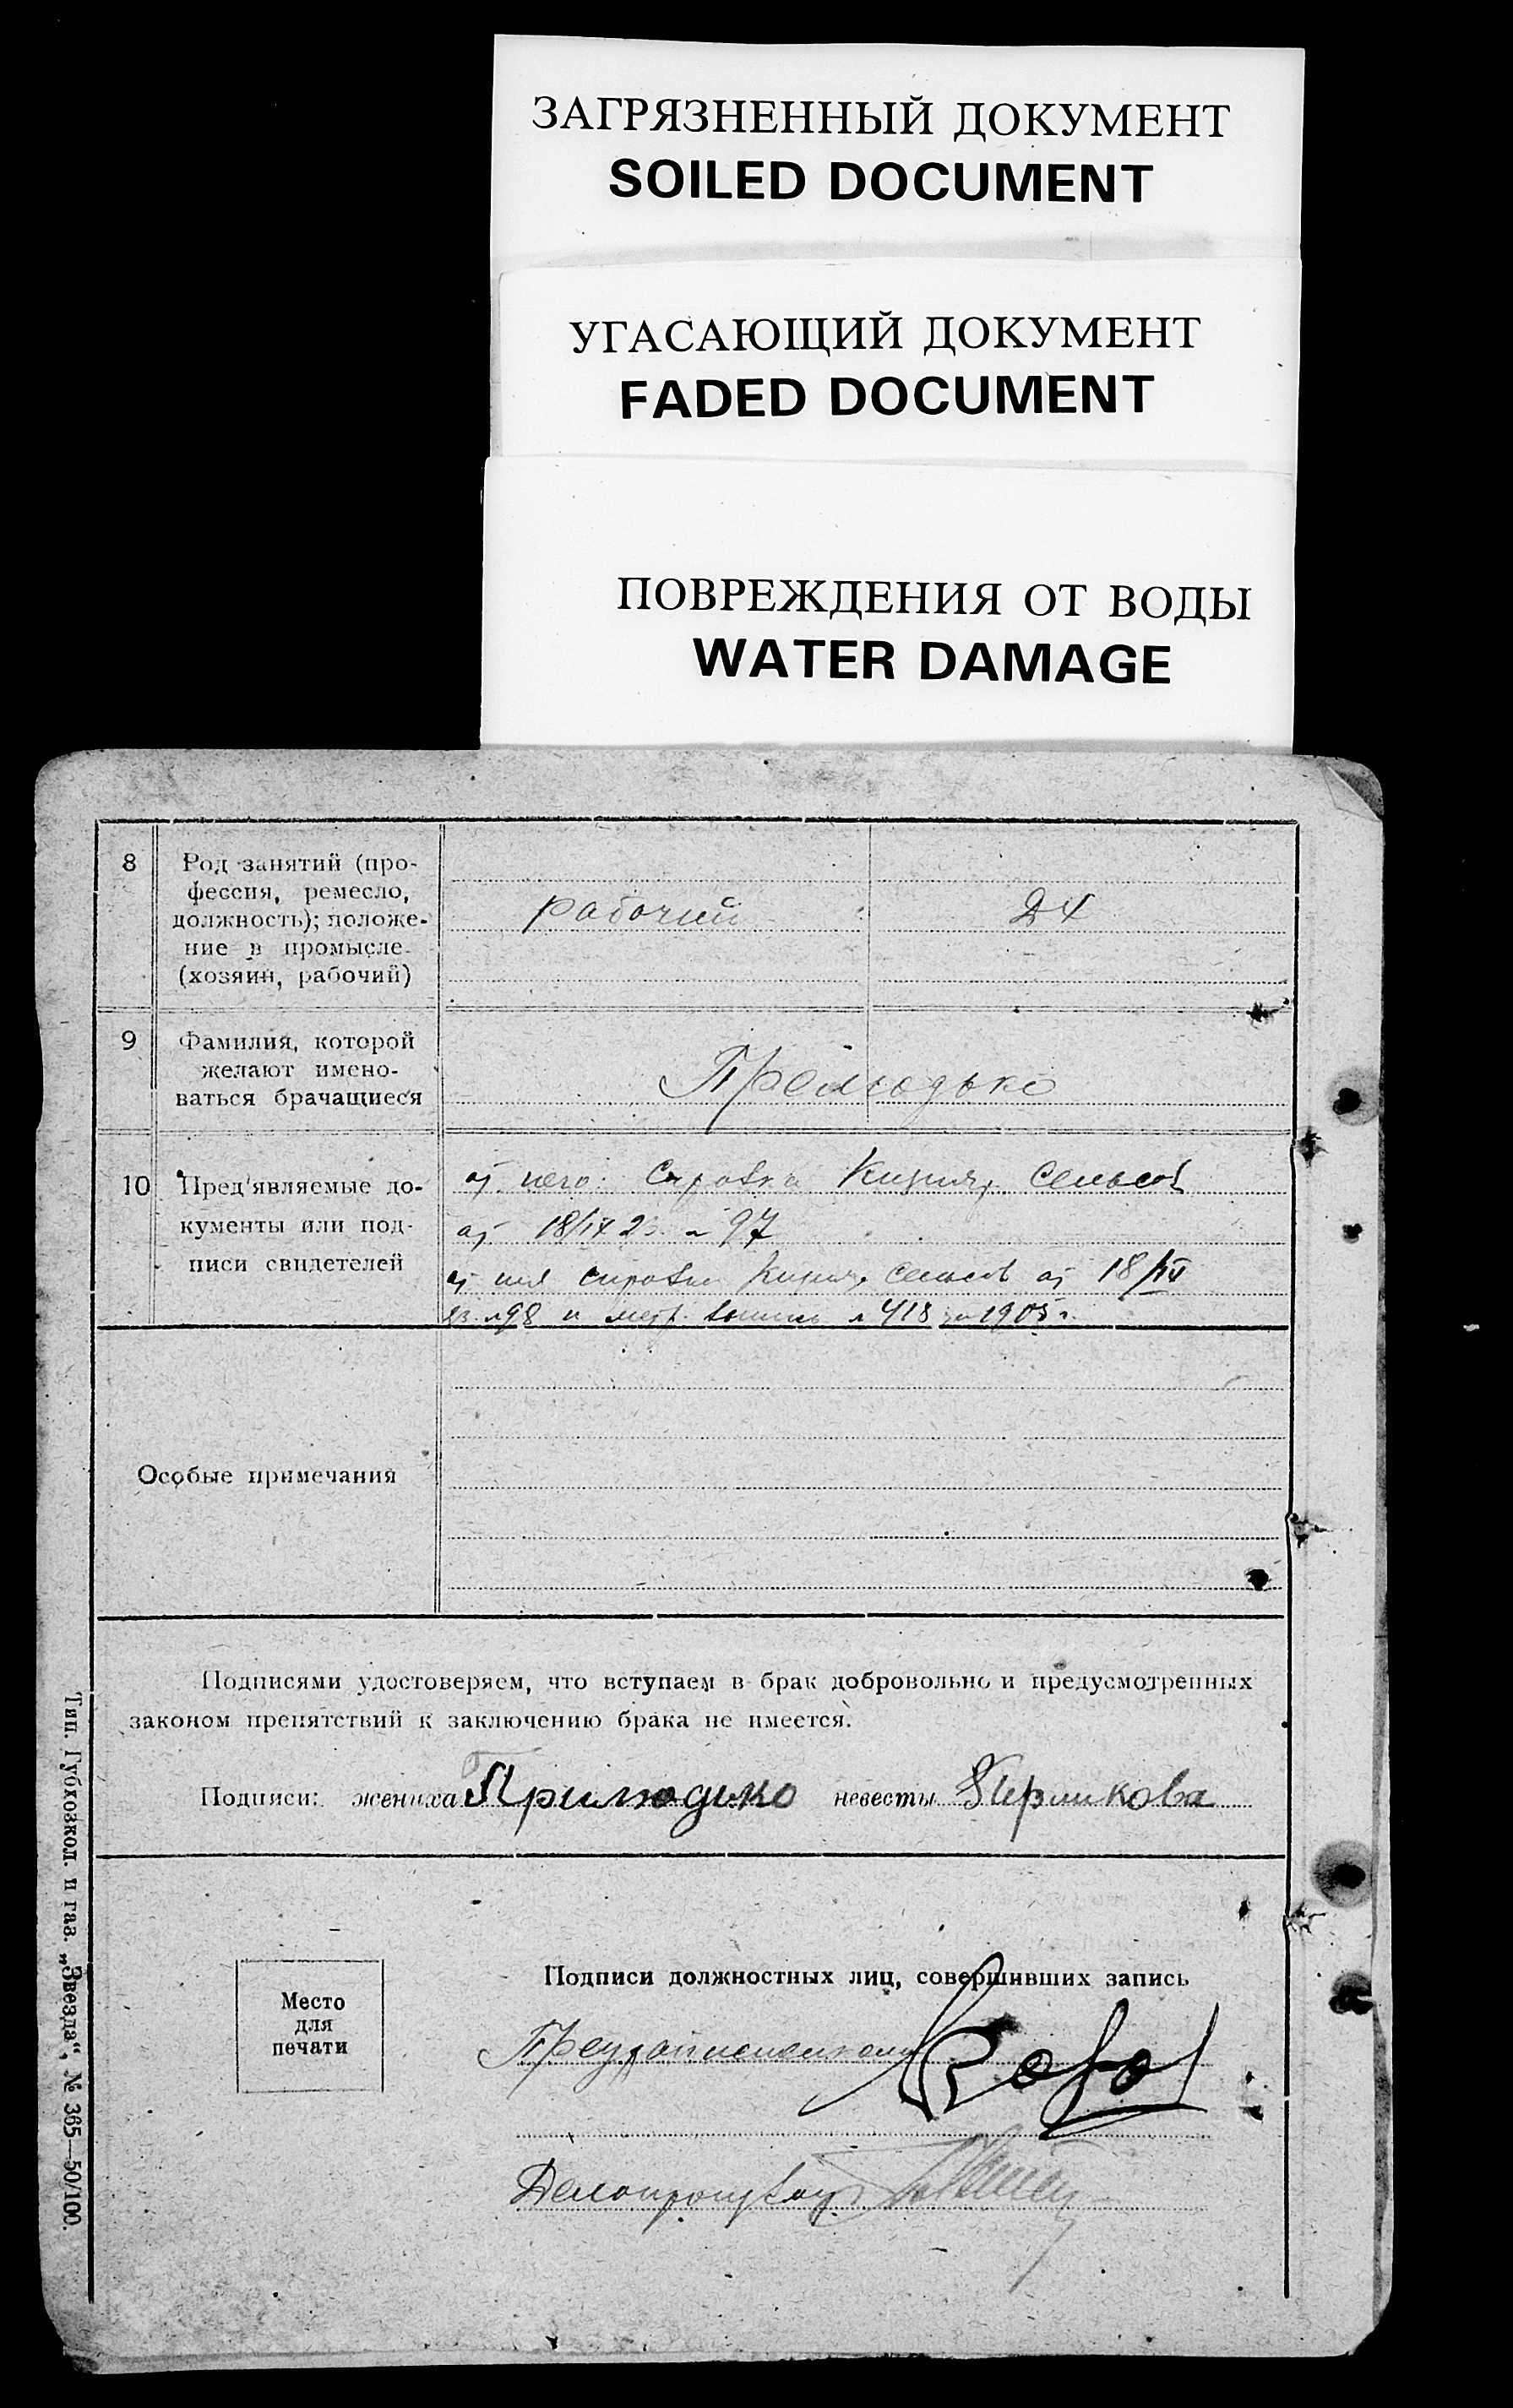 ЗАГРЯЗНЕННЫЙ ДОКУМЕНТ
SOILED DOCUMENT
УГАСАЮЩИЙ ДОКУМЕНТ
FADED DOCUMENT
ПОВРЕЖДЕНИЯ ОТ ВОДЫ
WATER DAMAGE
8
Род занятий (про-
фессия, ремесло,
должность); положе-
ние в промысле
(хозяин, рабочий)
рабочий
ДХ
9
Фамилия, которой
желают имено-
ваться брачащиеся
10
Пред'являемые до-
кументы или под-
писи свидетелей
от него: Справка сельсов
от 18/IX 23. № 97
справка сельсов от 18/IX
23. № 98 и метр. выпись № 418 за 1905 г.
Особые примечания
Подписями удостоверяем, что вступаем в брак добровольно и предусмотренных
законом препятствий к заключению брака не имеется.
Подписи: жениха Прилюдько невесты
Место
для
печати
Подписи должностных лиц, совершивших запись
Тип. Губхозкол. и газ. „Звезда“, № 365—50/100.